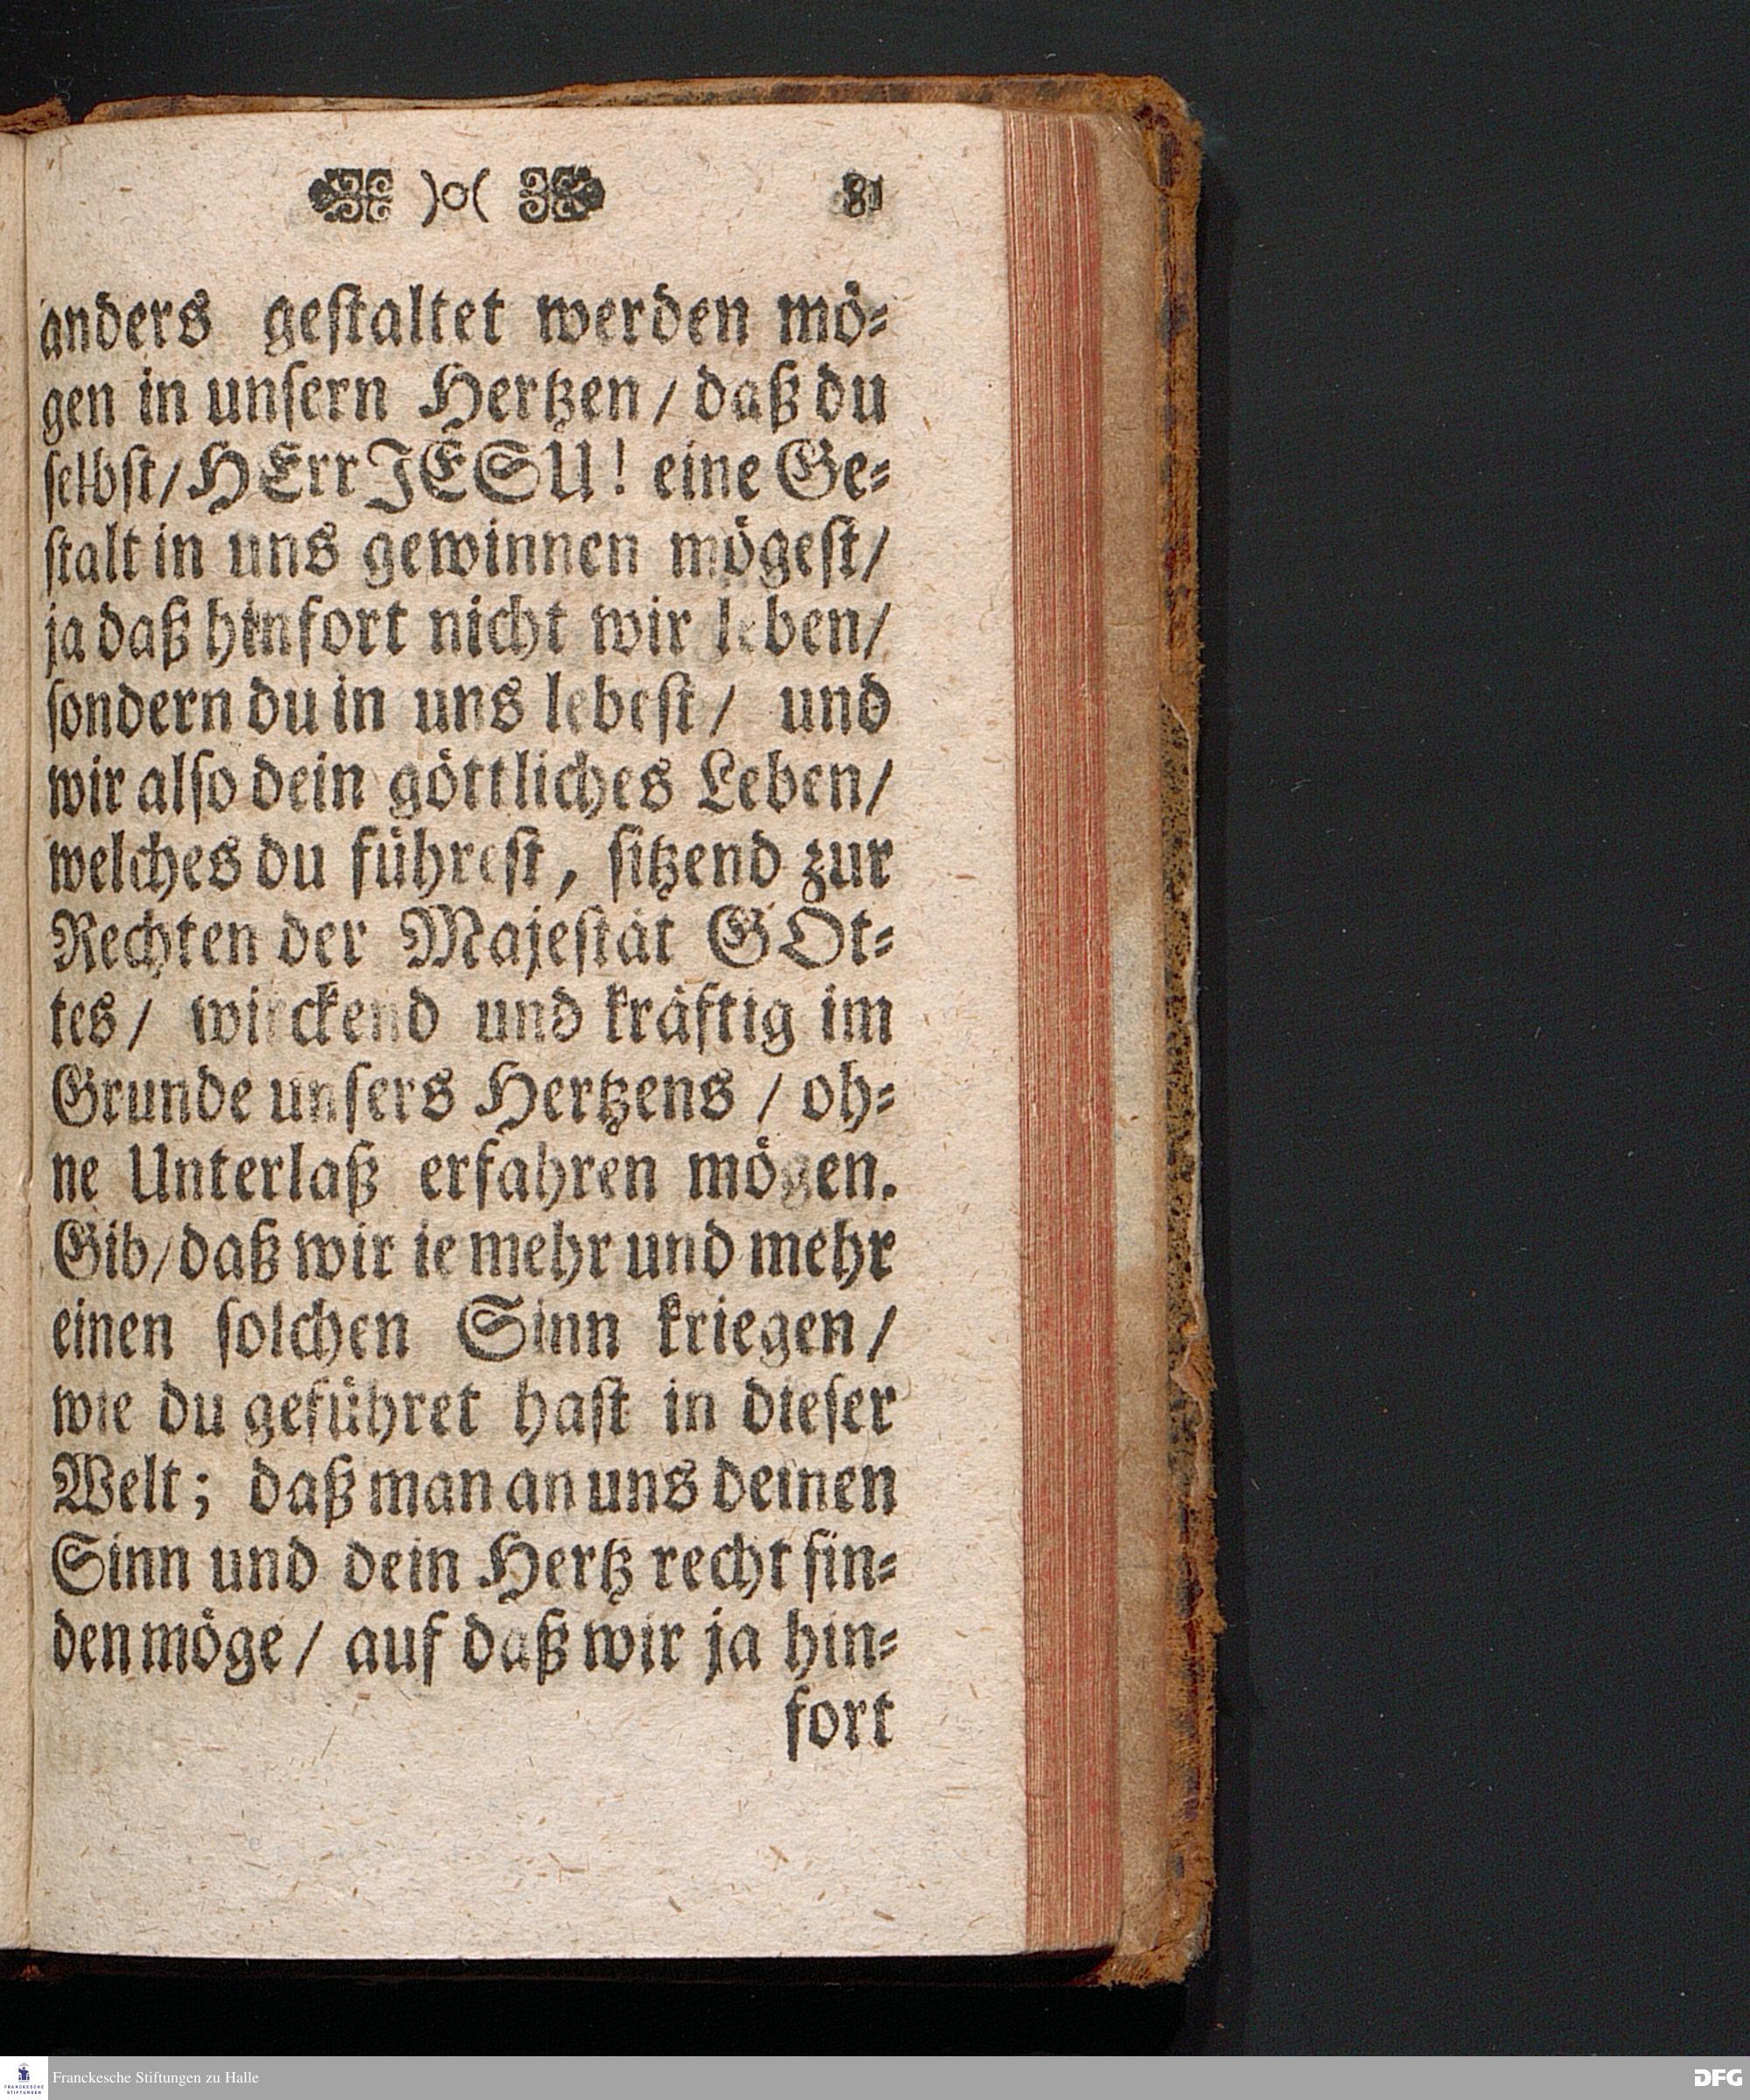 )o( 81
anders gestaltet werden mö⸗
gen in unsern Hertzen / daß du
selbst / HErr JESU! eine Ge⸗
stalt in uns gewinnen mögest /
ja daß hinfort nicht wir leben /
sondern du in uns lebest / und
wir also dein göttliches Leben /
welches du führest, sitzend zur
Rechten der Majestät GOt⸗
tes / wirckend und kräftig im
Grunde unsers Hertzens / oh⸗
ne Unterlaß erfahren mögen.
Gib / daß wir ie mehr und mehr
einen solchen Sinn kriegen /
wie du geführet hast in dieser
Welt; daß man an uns deinen
Sinn und dein Hertz recht fin⸗
den möge / auf daß wir ja hin⸗
fort
FRANCKESCHE STIFTUNGEN
Franckesche Stiftungen zu Halle
DFG